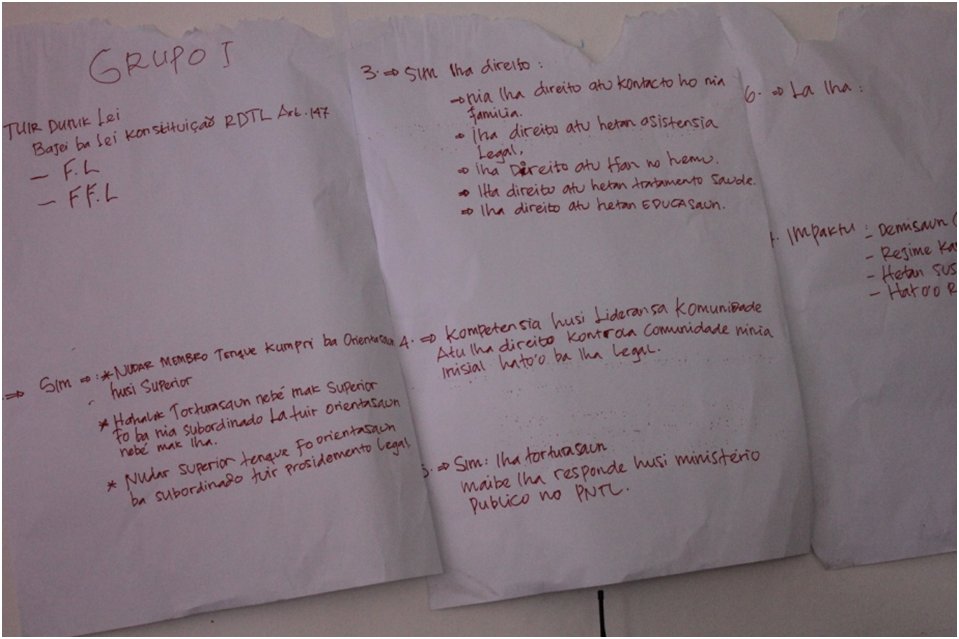 GRUPO I
TUIR DUTUK Lei
Bajei ba Lei Konstituição RDTL Art. 147
— F.L
— FF.L
⇒ SIM ⇒ : * NUDAR MEMBRO Tenque kumpri ba Orientasaun
husi Superior
* Hahalok Torturasaun nebé mak Superior
fo ba nia subordinado La tuir orientasaun
nebé mak Iha.
* Nudar superior tenque Fo orientasaun
ba subordinado tuir prosidemento Legal
3. ⇒ SIM Iha direito :
→ nia Iha direito atu kontacto ho nia
familia.
⇒ Iha direito atu hetan asistensia
Legal,
⇒ Iha Direito atu Han no hemu.
⇒ Iha direito atu hetan tratamento saude.
⇒ Iha direito atu hetan EDUCAsaun.
4. ⇒ Kompetensia husi Lideransa Komunidade
Atu Iha direito kontrola Comunidade ninia
Inisial hato'o ba Iha Legal.
5. ⇒ Sim: Iha torturasaun
maibe Iha responde husi ministério
Publico no PNTL.
6. ⇒ La Iha :
Impaktu : – Demisaun
– Rejime
– Hetan
– Hato'o